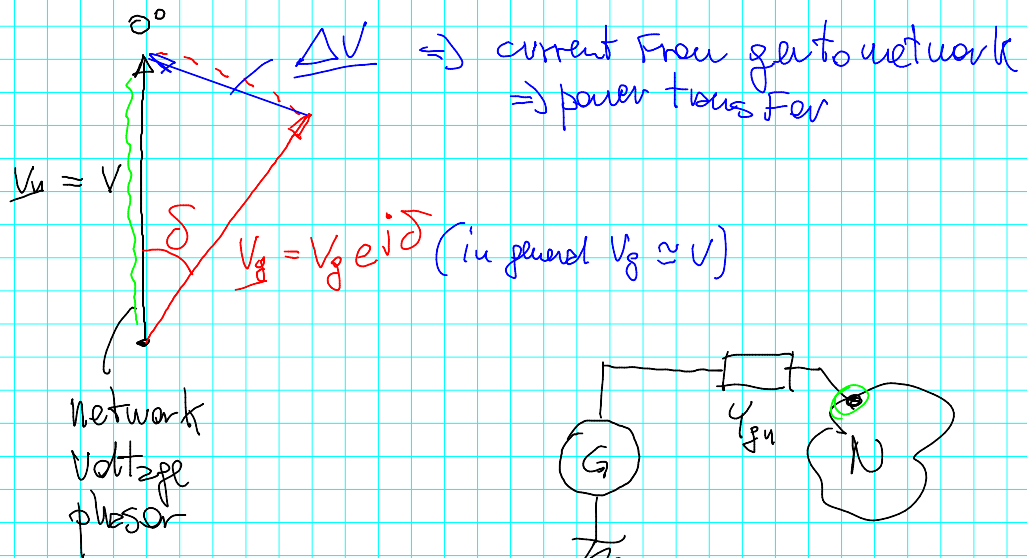 0°
ΔV ⇒ current from gen to network
⇒ power transfer
Vn = V
δ
Vg = Vg e^jδ (in general Vg ≃ V)
network
voltage
phasor
G
Ygn
N